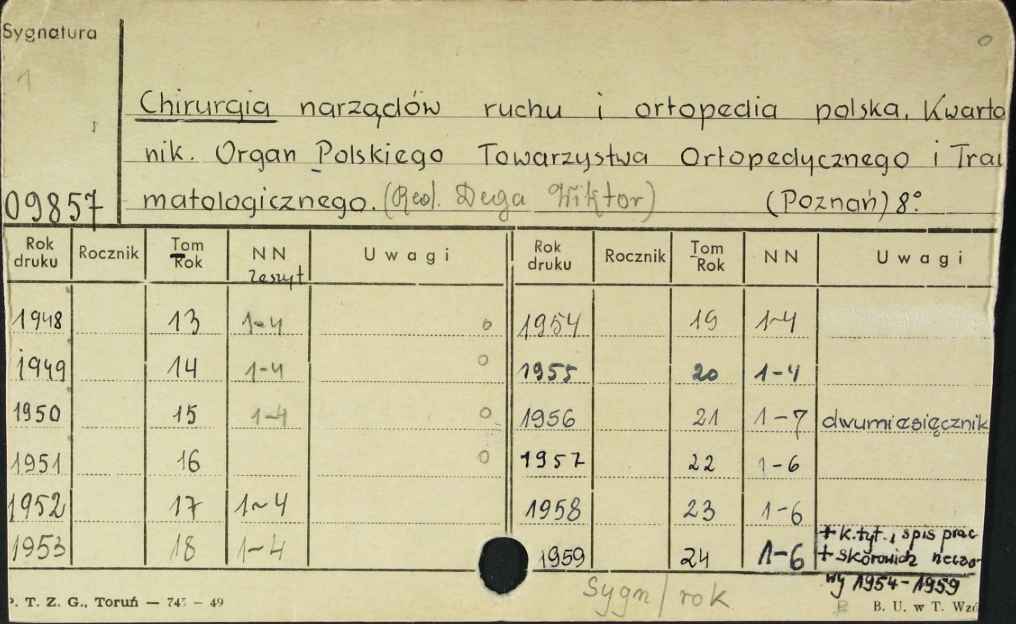 Sygnatura
1
Chirurgia narządów ruchu i ortopedia polska. Kwarto
nik. Organ Polskiego Towarzystwa Ortopedycznego i Trau
09857 matologicznego. (Red. Dega Wiktor) (Poznań) 8°
Rok druku Rocznik Tom Rok NN zeszyt Uwagi Rok druku Rocznik Tom Rok NN Uwagi
1948 13 1-4 1954 19 1-4
1949 14 1-4 1955 20 1-4
1950 15 1-4 1956 21 1-7 dwumiesięcznik
1951 16 1957 22 1-6
1952 17 1-4 1958 23 1-6
1953 18 1-4 1959 24 1-6 + k.tyt. i spis prac
+ skorowidz rzeczo
wy 1954-1959
Sygn/rok
P. T. Z. G., Toruń — 745 — 49 B. U. w T. Wzó